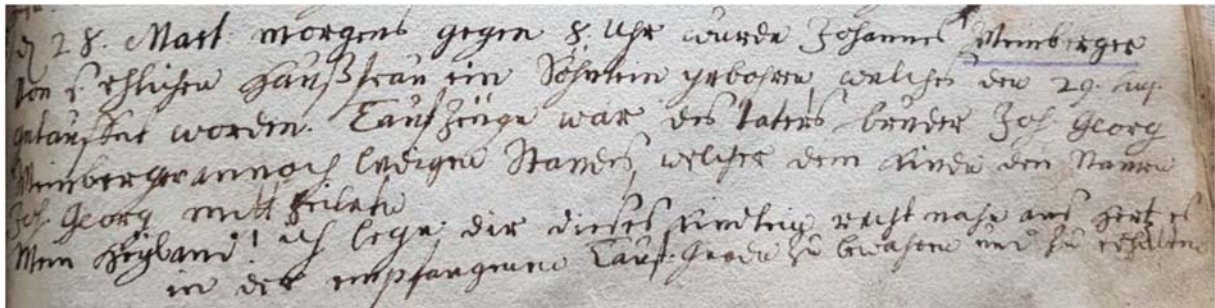 d 28. Mart. morgens gegen 8. Uhr wurde Johannes Weinberger
von s. ehlichen Haußfrau ein Söhnlein gebohren, welches den 29. huj.
getauffet worden. Taufzeuge war des Vaters bruder Joh. Georg
Weinberger annoch ledigen Standes, welcher dem Kinde den Namen
Joh. Georg mittheilete
Mein Heyland! ich lege dir dieses Kindlein recht nahe ans Hertz es
in der empfangenen Tauf-Gnade zu bewahren und zu erhalten